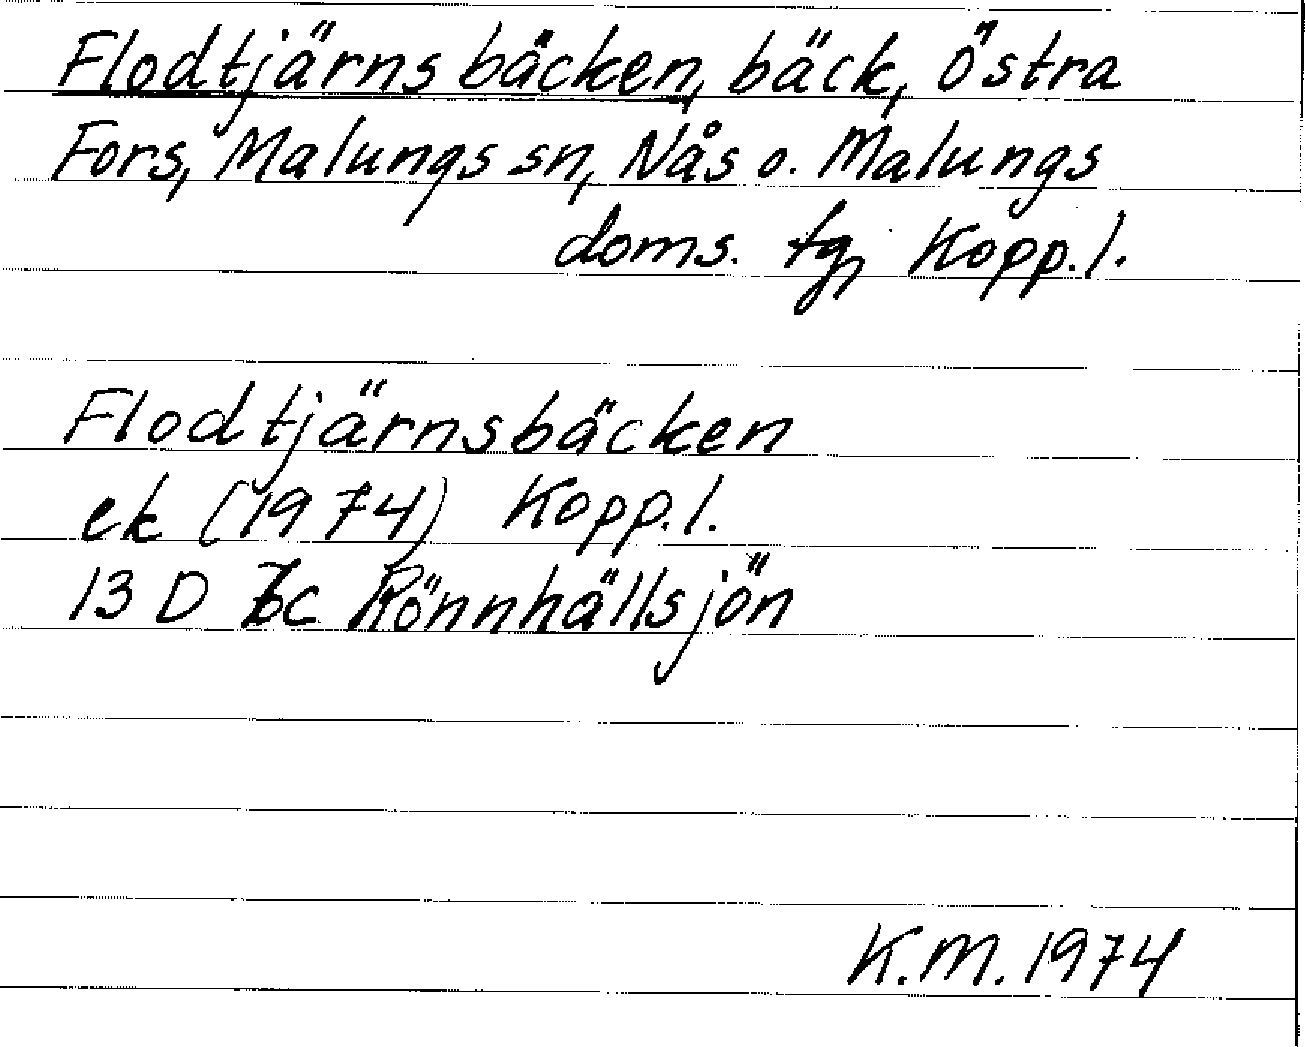 Flodtjärnsbäcken, bäck, Östra
Fors, Malungs sn, Nås o. Malungs
doms. tg, Kopp.l.
Flodtjärnsbäcken
ek (1974) Kopp.l.
13 D Rönnhällsjön
K.M. 1974